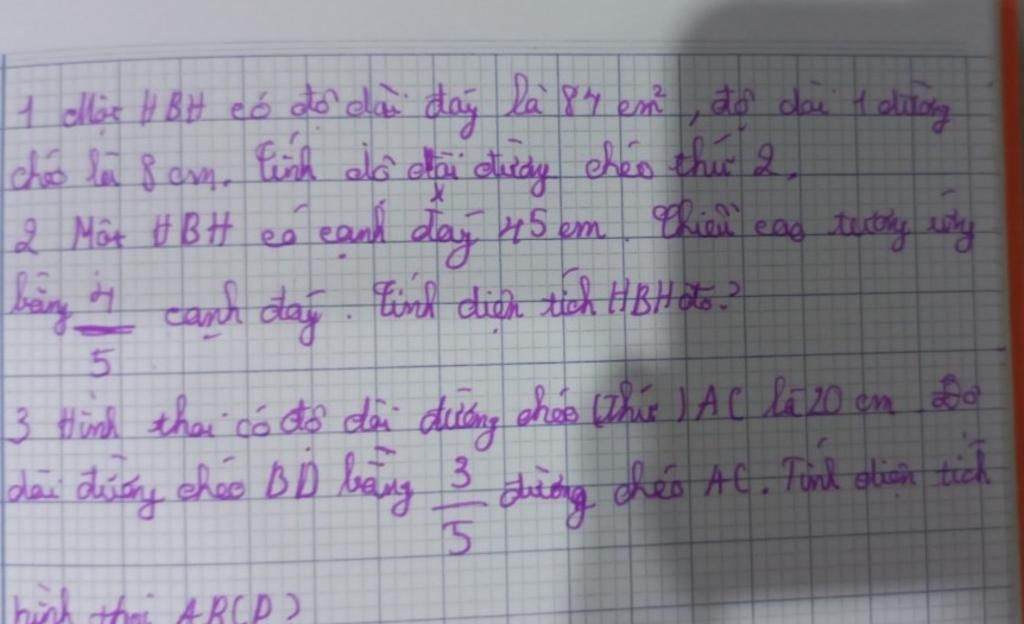 1 Một HBH có độ dài đáy là 84 cm², độ dài 1 đường
chéo là 8 cm. Tính độ dài đường chéo thứ 2.
2 Một HBH có cạnh đáy 45 cm. Chiều cao tương ứng
bằng 4/5 cạnh đáy. Tính diện tích HBH đó?
3 Hình thoi có độ dài đường chéo (thứ) AC là 20 cm Độ
dài đường chéo BD bằng 3/5 đường chéo AC. Tính diện tích
hình thoi ABCD?